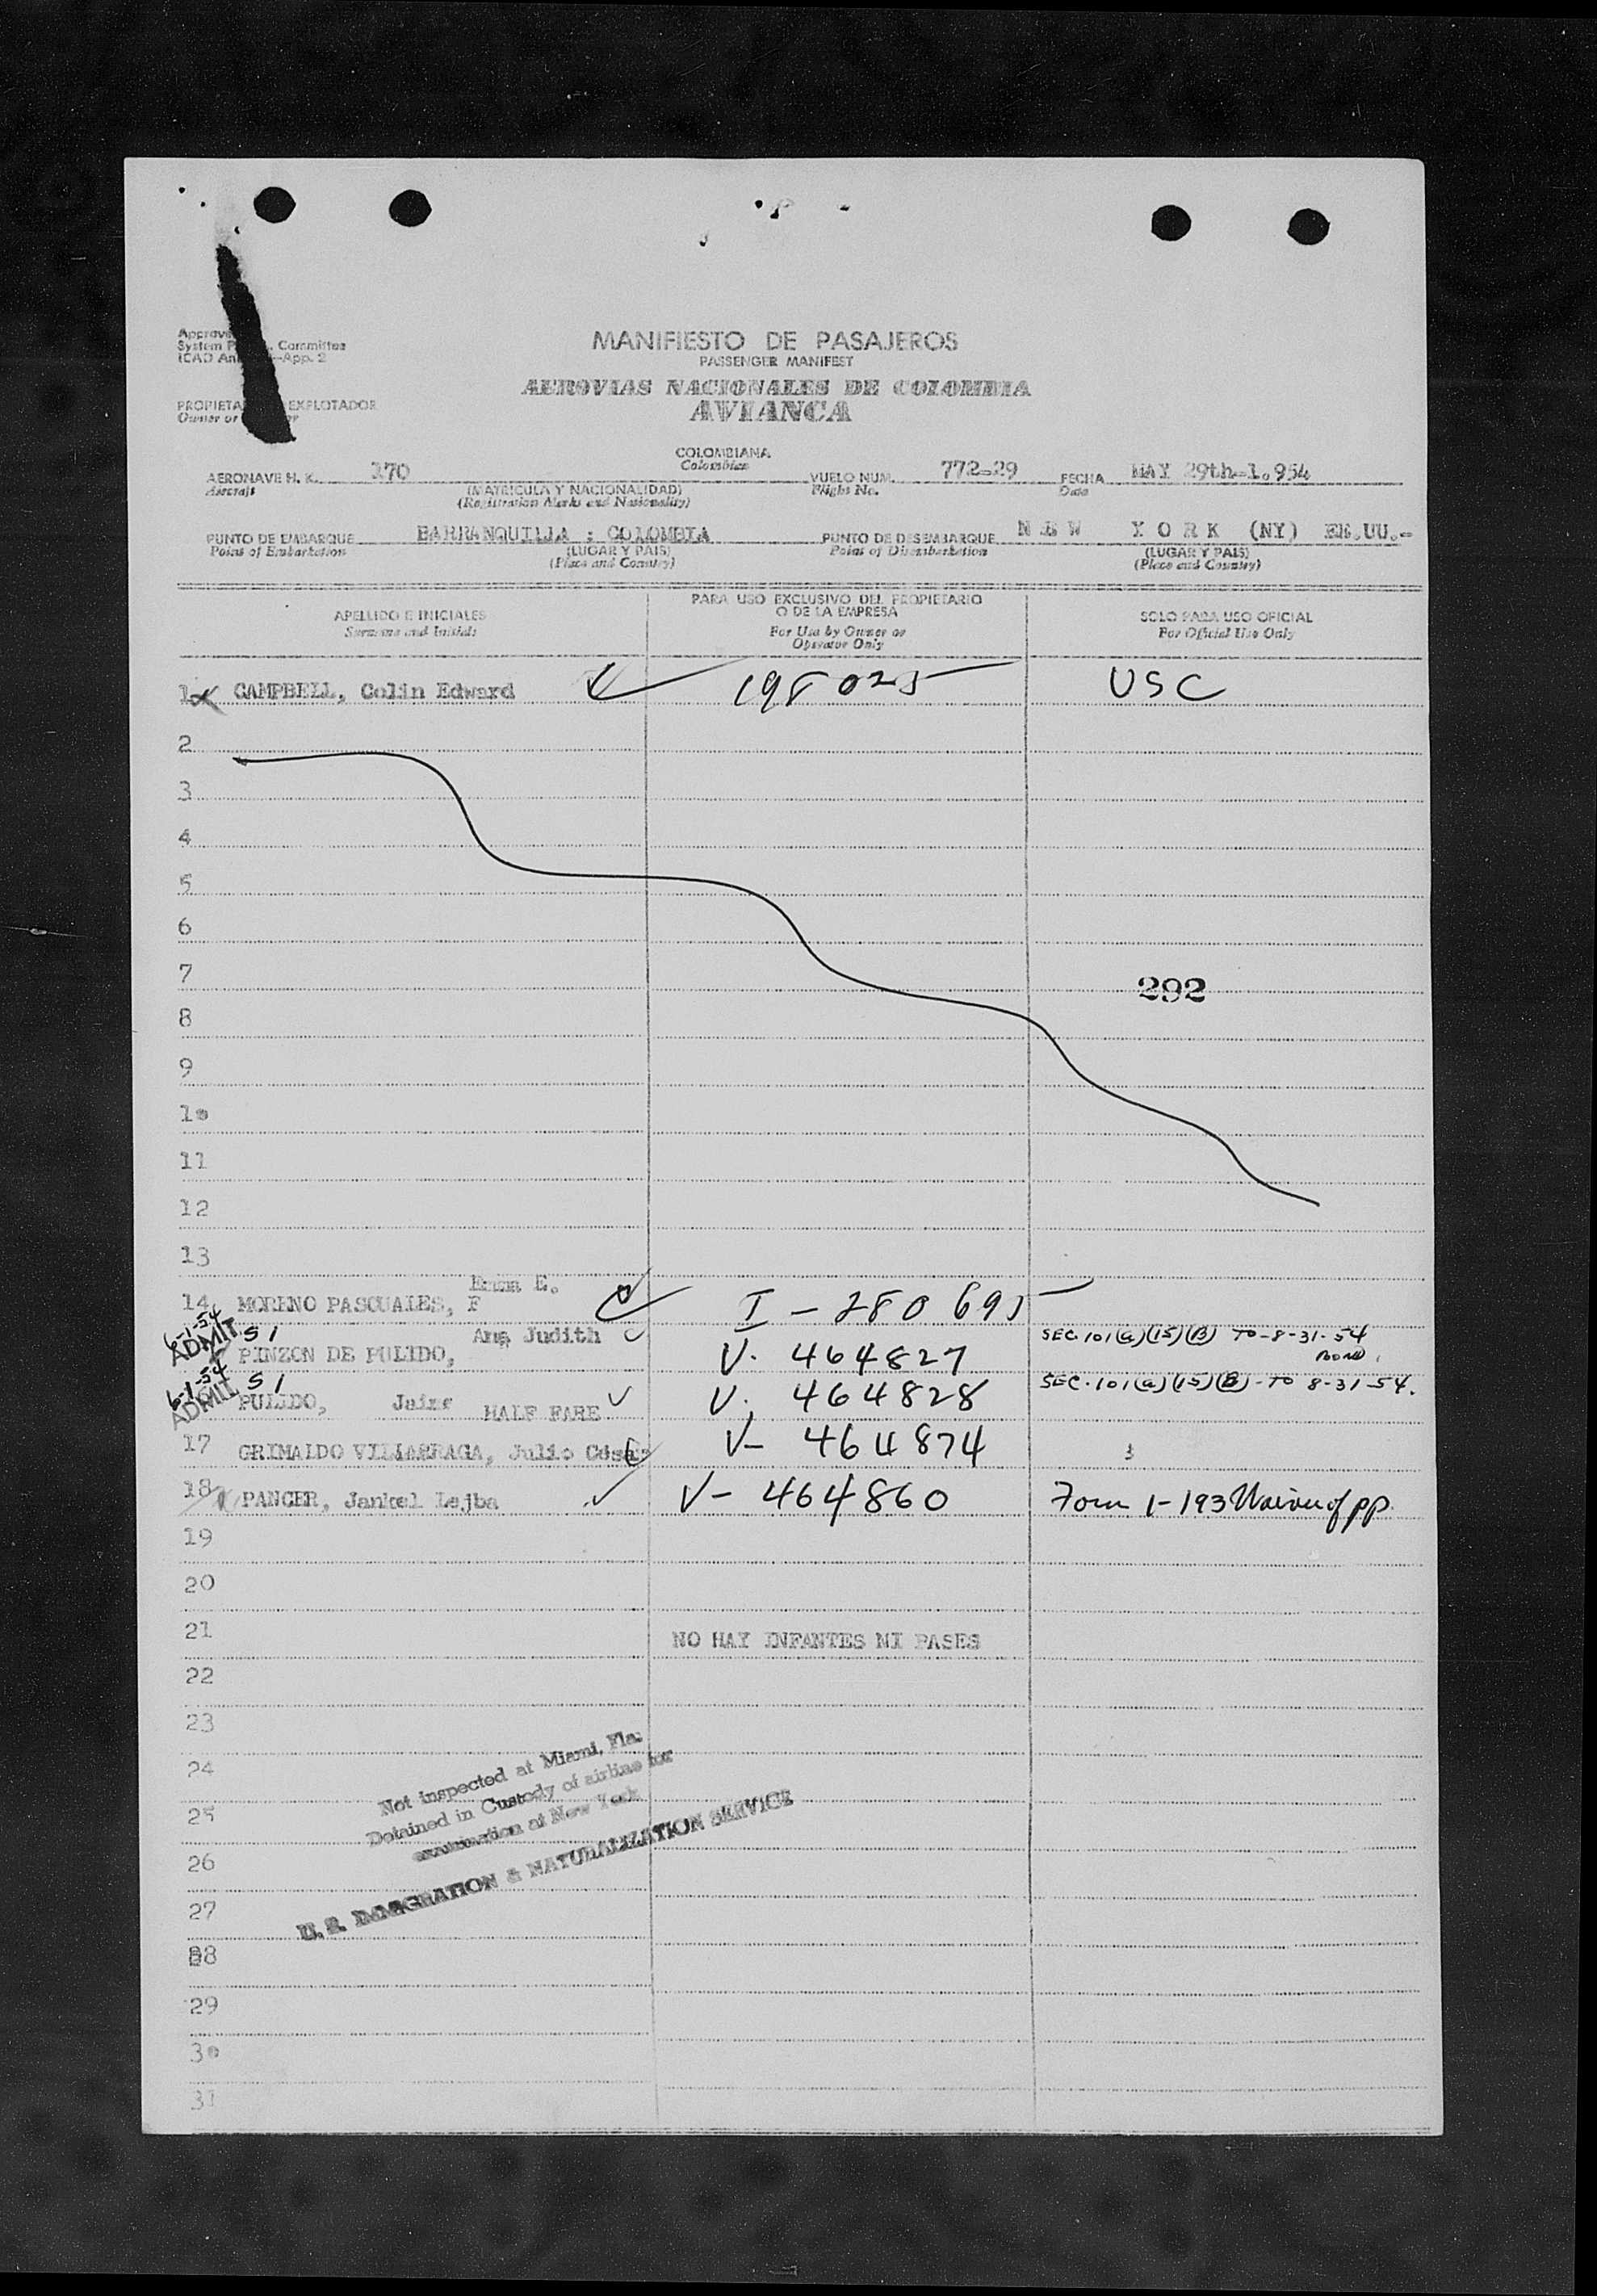 Committee
System
ICAO
App. 2
MANIFIESTO DE PASAJEROS
PASSENGER MANIFEST
AEROVIAS NACIONALES DE COLOMBIA
AVIANCA
EXPLOTADOR
Owner or
COLOMBIANA
Colombian
AERONAVE H. K. 170
Aircraft
(MATRICULA Y NACIONALIDAD)
(Registration Marks and Nationality)
VUELO NUM. 772-29
Flight No.
FECHA MAY 29th-1.954
Date
PUNTO DE EMBARQUE BARRANQUILLA : COLOMBIA
Point of Embarkation
(LUGAR Y PAIS)
(Place and Country)
PUNTO DE DESEMBARQUE N E W Y O R K (NY) EE.UU.-
Point of Disembarkation
(LUGAR Y PAIS)
(Place and Country)
APELLIDO E INICIALES
Surname and Initials
PARA USO EXCLUSIVO DEL PROPIETARIO
O DE LA EMPRESA
For Use by Owner or
Operator Only
SOLO PARA USO OFICIAL
For Official Use Only
1 CAMPBELL, Colin Edward 198025 USC
2
3
4
5
6
7
292
8
9
10
11
12
13
Emma E.
14 MORENO PASCUALES, F I-280695
6-1-54 ADMIT 51 Judith SEC. 101(a)(15)(B) TO-8-31-54
PINZON DE PULIDO, V. 464827
6-1-54 ADMIT 51 SEC. 101(a)(15)(B)-TO 8-31-54.
PULIDO, HALF FARE V. 464828
17 GRIMALDO VILLARRAGA, Julio V- 464874
18 PANCER, Jankel Lejba V- 464860 Form 1-193 Waiver of pp.
19
20
21 NO HAY INFANTES NI PASES
22
23
24
25
26
27
28
29
30
31
Not inspected at Miami, Fla.
Detained in Custody of airline for
examination at New York
U. S. IMMIGRATION & NATURALIZATION SERVICE